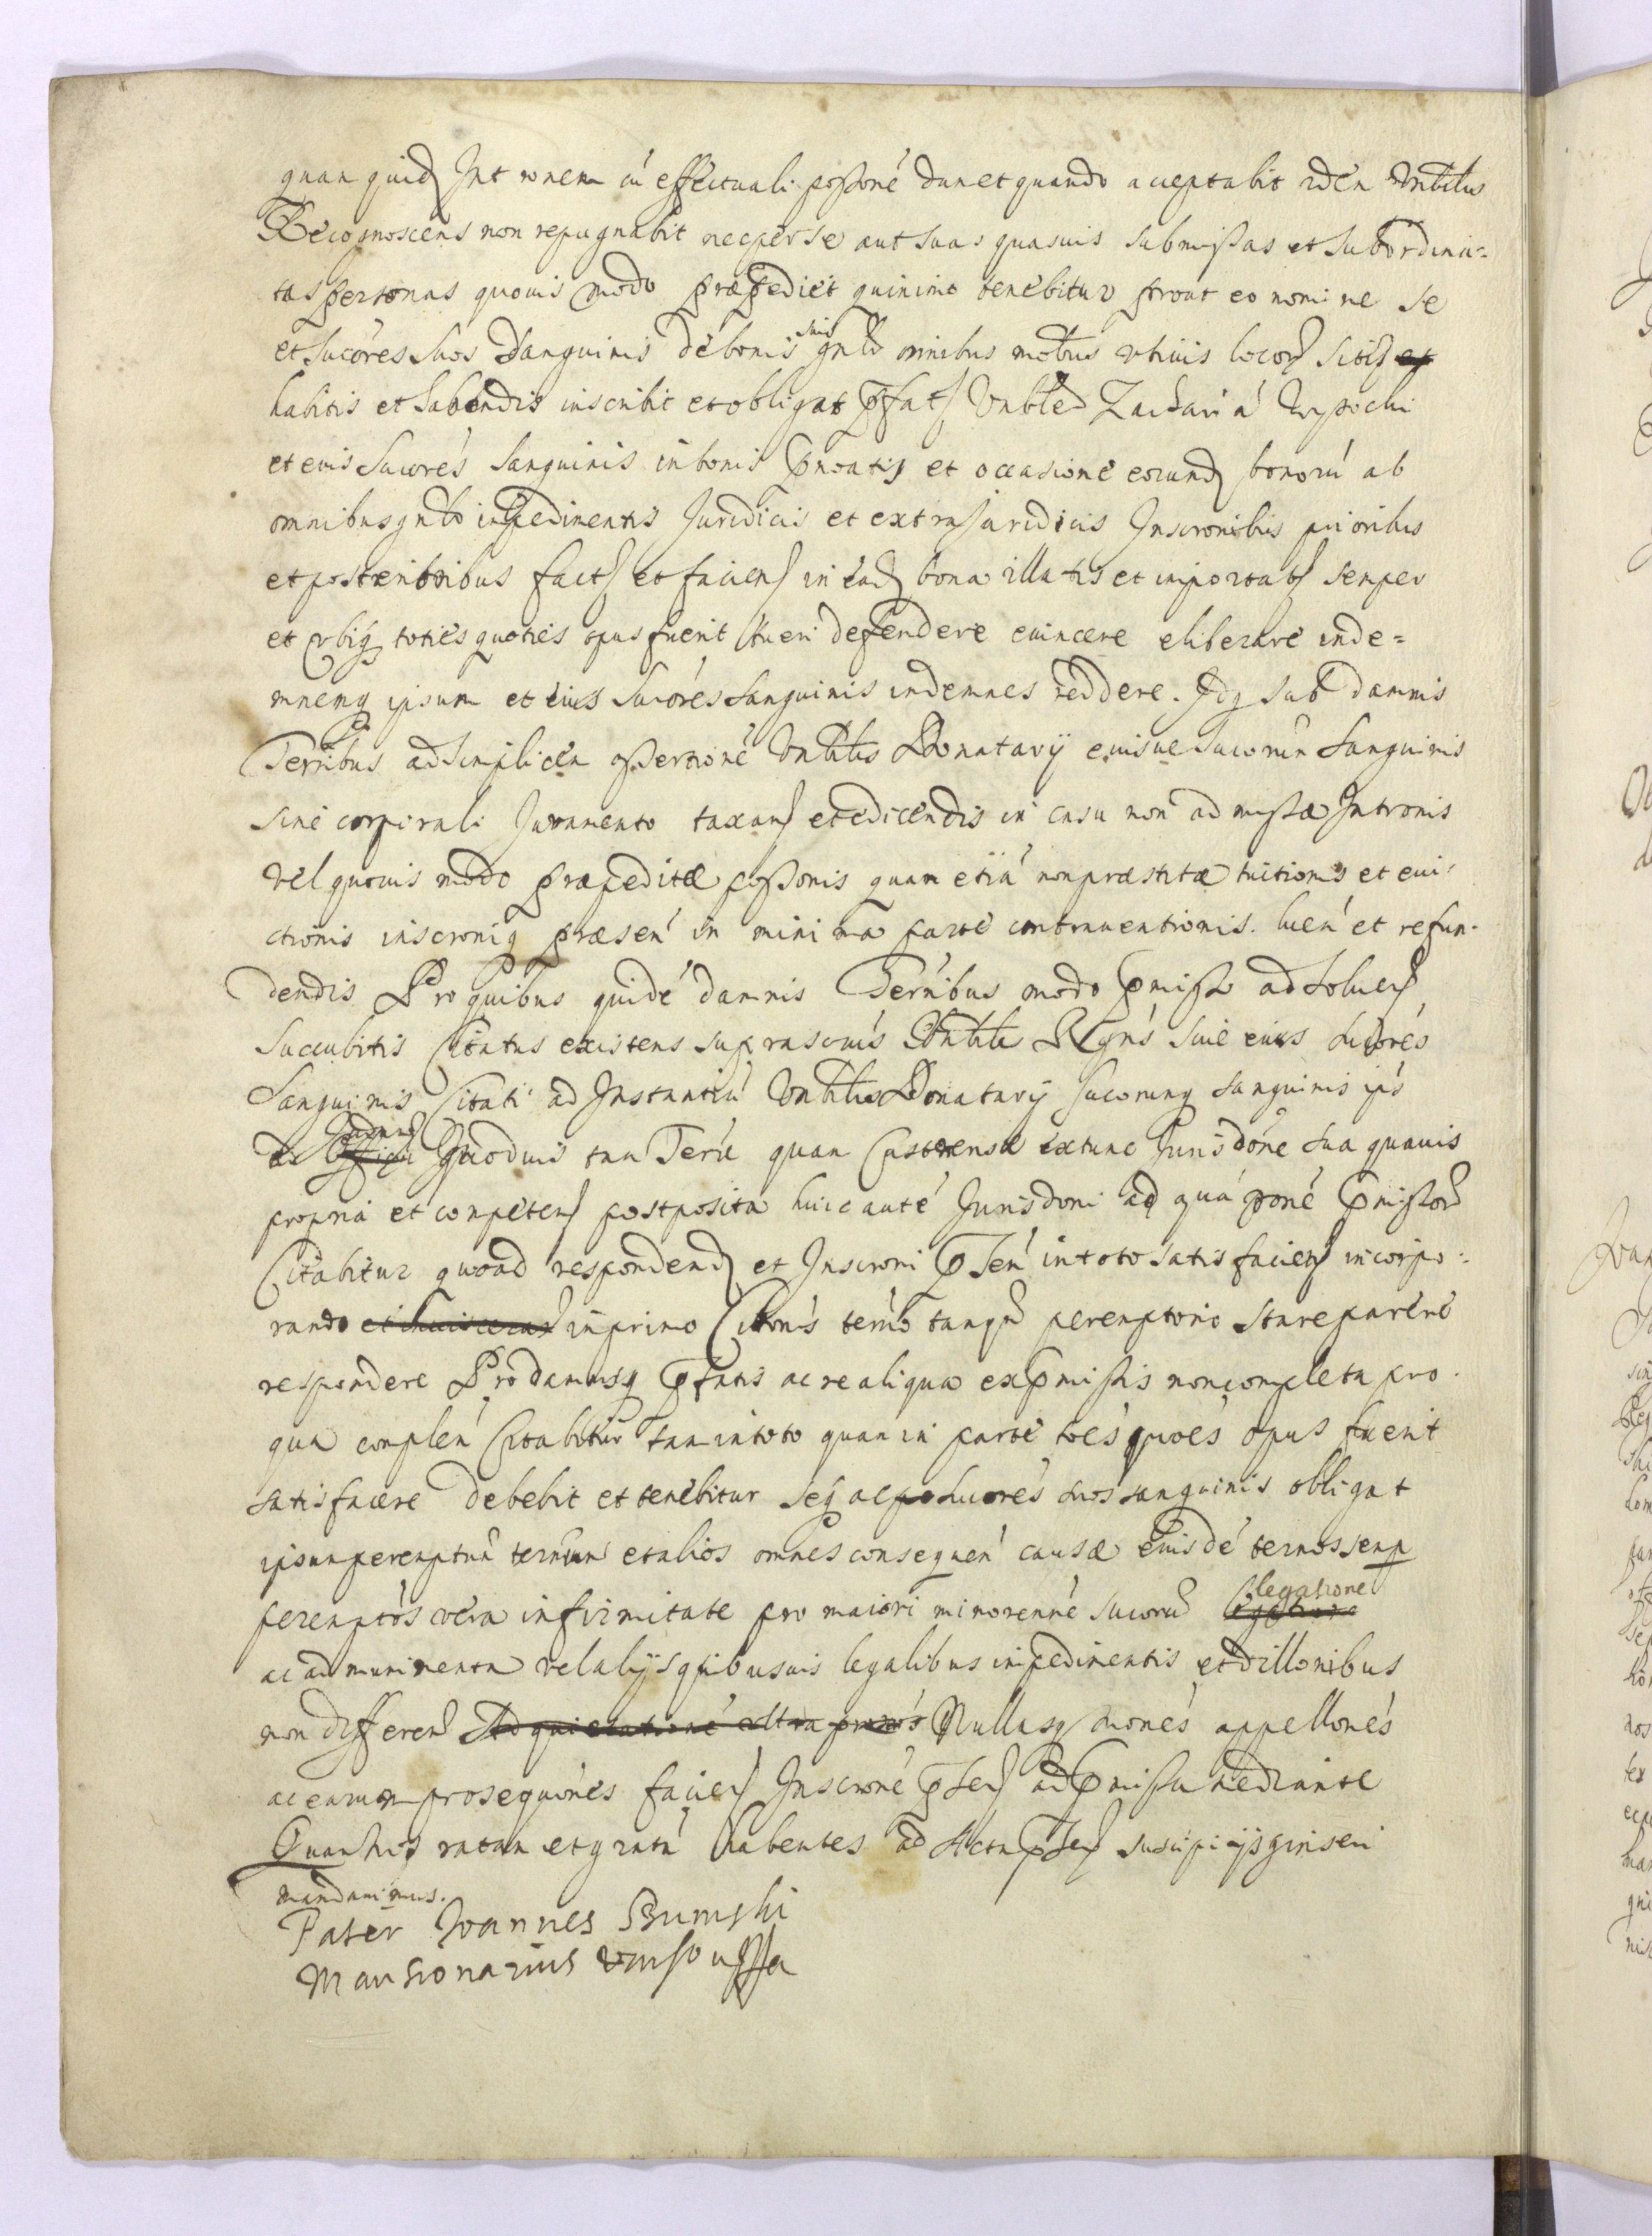 quam quid Intronem cu effectuali possoné dum et quando acceptabit idem Vnbilis
Recognoscens non repugnabit nec per se aut suas quasuis submissas et subordina=
tas personas quouis modo præpediet quinimo tenebitur prout eo nomine se
et Sucores suos Sanguinis de bonis suis gnlr omnibus mobus vbiuis locor sitis
habitis et habendis inscribit et obligat pfat Vnblem Zacharia
et eius Sucores Sanguinis in bonis pnoatis et occasione eorund bonorú ab
omnibus gnlr impedimentis Juridicis et extraJuridicis Inscronibus prioribus
et posterioribus fact et facien in ead bona illatis et importat semper
et vbiq toties quoties opus fuerit tueri defendere euincere eliberare inde=
mnemq ipsum et eius Sucores Sanguinis indemnes reddere. Idq sub damnis
Terribus ad simplicem assertione Vnbilis Donatarij eiusue Sucorum Sanguinis
sine corporali Juramento taxan et edicendis in casu non admissæ Intronis
vel quouis modo præpeditæ possonis quam etiá non præstitæ tuitionis et eui=
ctionis inscroniq præsen in minima parte contrauentionis. luen et refun=
dendis Pro quibus quidé damnis Terribus modo pmisso ad soluen
succubitis Citatus existens suprascrús Vnbilis Rgns siue eius sucores
Sanguinis Citati ad Instantiá Vnbilis Donatarij Sucorumq Sanguinis ips
Quoduis tam Terré quam Castrense extunc Jurisdóne sua quauis
propria et competen postposita huic auté Jurisdoni ad quá pmissor
Citabitur quoad respondend et Inscroni psen in toto satisfacien incorpo=
rando in primo Citonis termo tanqm peremptorio stare parere
respondere Pro damnisq pfatis ac re aliqua ex pmissis non completa pro
qua complen Citabitur tam in toto quam in parte toés quoés opus fuerit
satisfacere debebit et tenebitur seq ac sucores suos sanguinis obligat
ipsum peremptum termum et alios omnes consequen causæ eiusdé termos semp
peremptos vera infirmitate pro maiori minorenné sucoru
ac ad munimenta vel alijs quibusuis legalibus impedimentis et dillonibus
non differen Nullasq mones appellones
ac earum prosequones facien Inscrone psen ad pmissa mediante
Quam hos ratam et gratá habentes ad Acta psen suscipi ijsq inseri
mandauimus.
Pater Joannes
Mansionarius